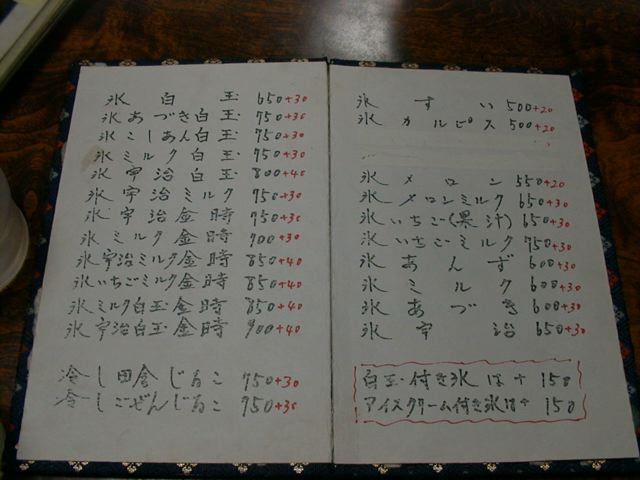 氷白玉 650+30
氷あづき白玉 750+30
氷こしあん白玉 750+30
氷ミルク白玉 750+30
氷宇治白玉 800+40
氷宇治ミルク 750+30
氷宇治金時 750+30
氷ミルク金時 700+30
氷宇治ミルク金時 850+40
氷いちごミルク金時 850+40
氷ミルク白玉金時 850+40
氷宇治白玉金時 900+40
冷し田舎じるこ 750+30
冷しごぜんじるこ 750+30
氷すい 500+20
氷カルピス 500+20
氷メロン 550+20
氷メロンミルク 650+30
氷いちご(果汁) 650+30
氷いちごミルク 750+30
氷あんず 600+30
氷ミルク 600+30
氷あづき 600+30
氷宇治 650+30
白玉付き氷は+150
アイスクリーム付き氷は+150